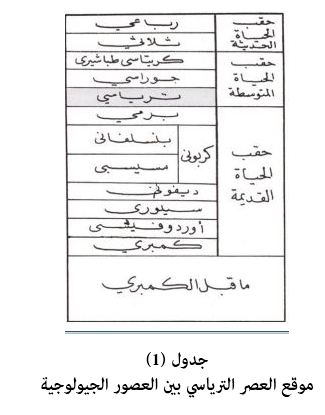 حقب
الحياة
الحديثة
رباعي
ثلاثي
حقب
الحياة
المتوسطة
كريتاسي طباشيرى
جوراسي
ترياسي
حقب
الحياة
القديمة
برمي
كربونى
بنسلفانى
مسيسبى
ديفونى
سيلورى
أوردوفيشى
كمبرى
ما قبل الكمبري
جدول (1)
موقع العصر الترياسي بين العصور الجيولوجية